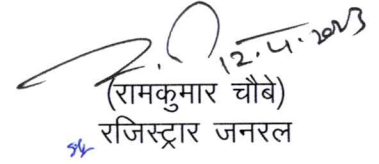 12.4.2023
(रामकुमार चौबे)
रजिस्ट्रार जनरल